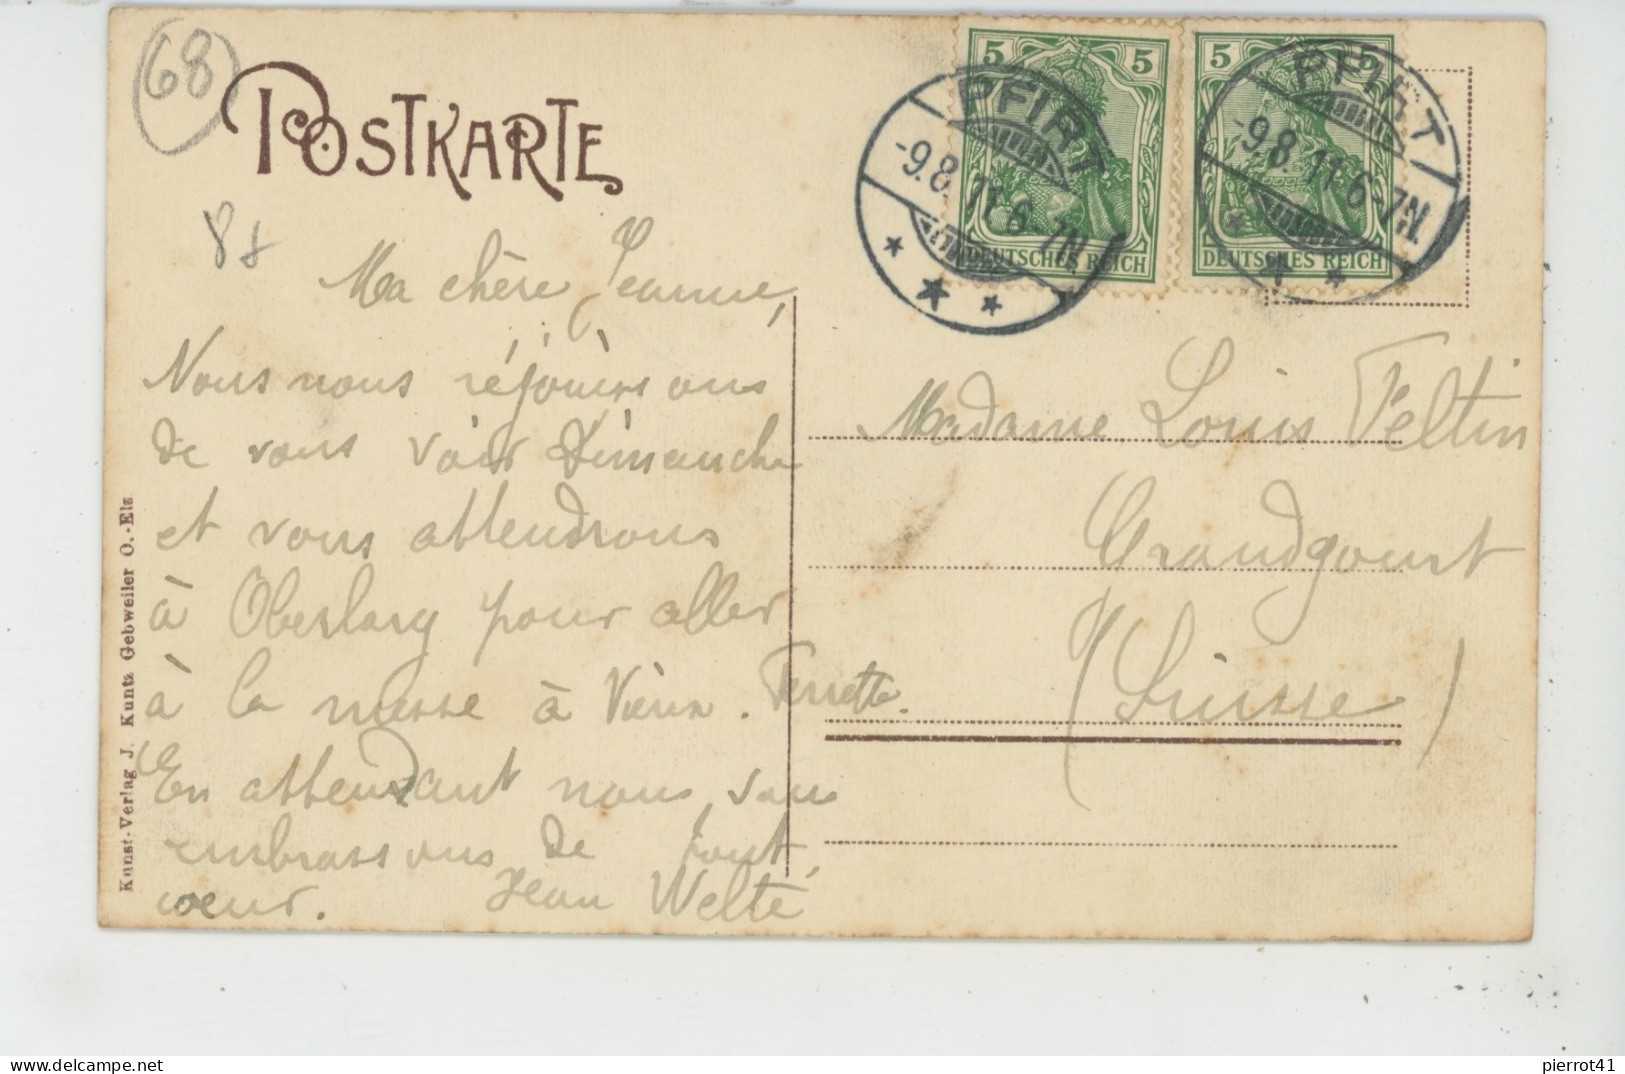 68
POSTKARTE
88
Ma chère Jeanne,
Nous nous réjouissons
de vous voir Dimanche
et vous attendrons
à Oberlarg pour aller
à la messe à Vieux-Ferrette.
En attendant nous vous
embrassons de tout
coeur. Jean Welté
Kunst-Verlag J. Kuntz Gebweiler O.-Els
5 5
DEUTSCHES REICH
PFIRT
-9.8.11.6-7N.
5 5
DEUTSCHES REICH
PFIRT
-9.8.11.6-7N.
Madame Louis Feltin
Grandgourt
(Suisse)
pierrot41